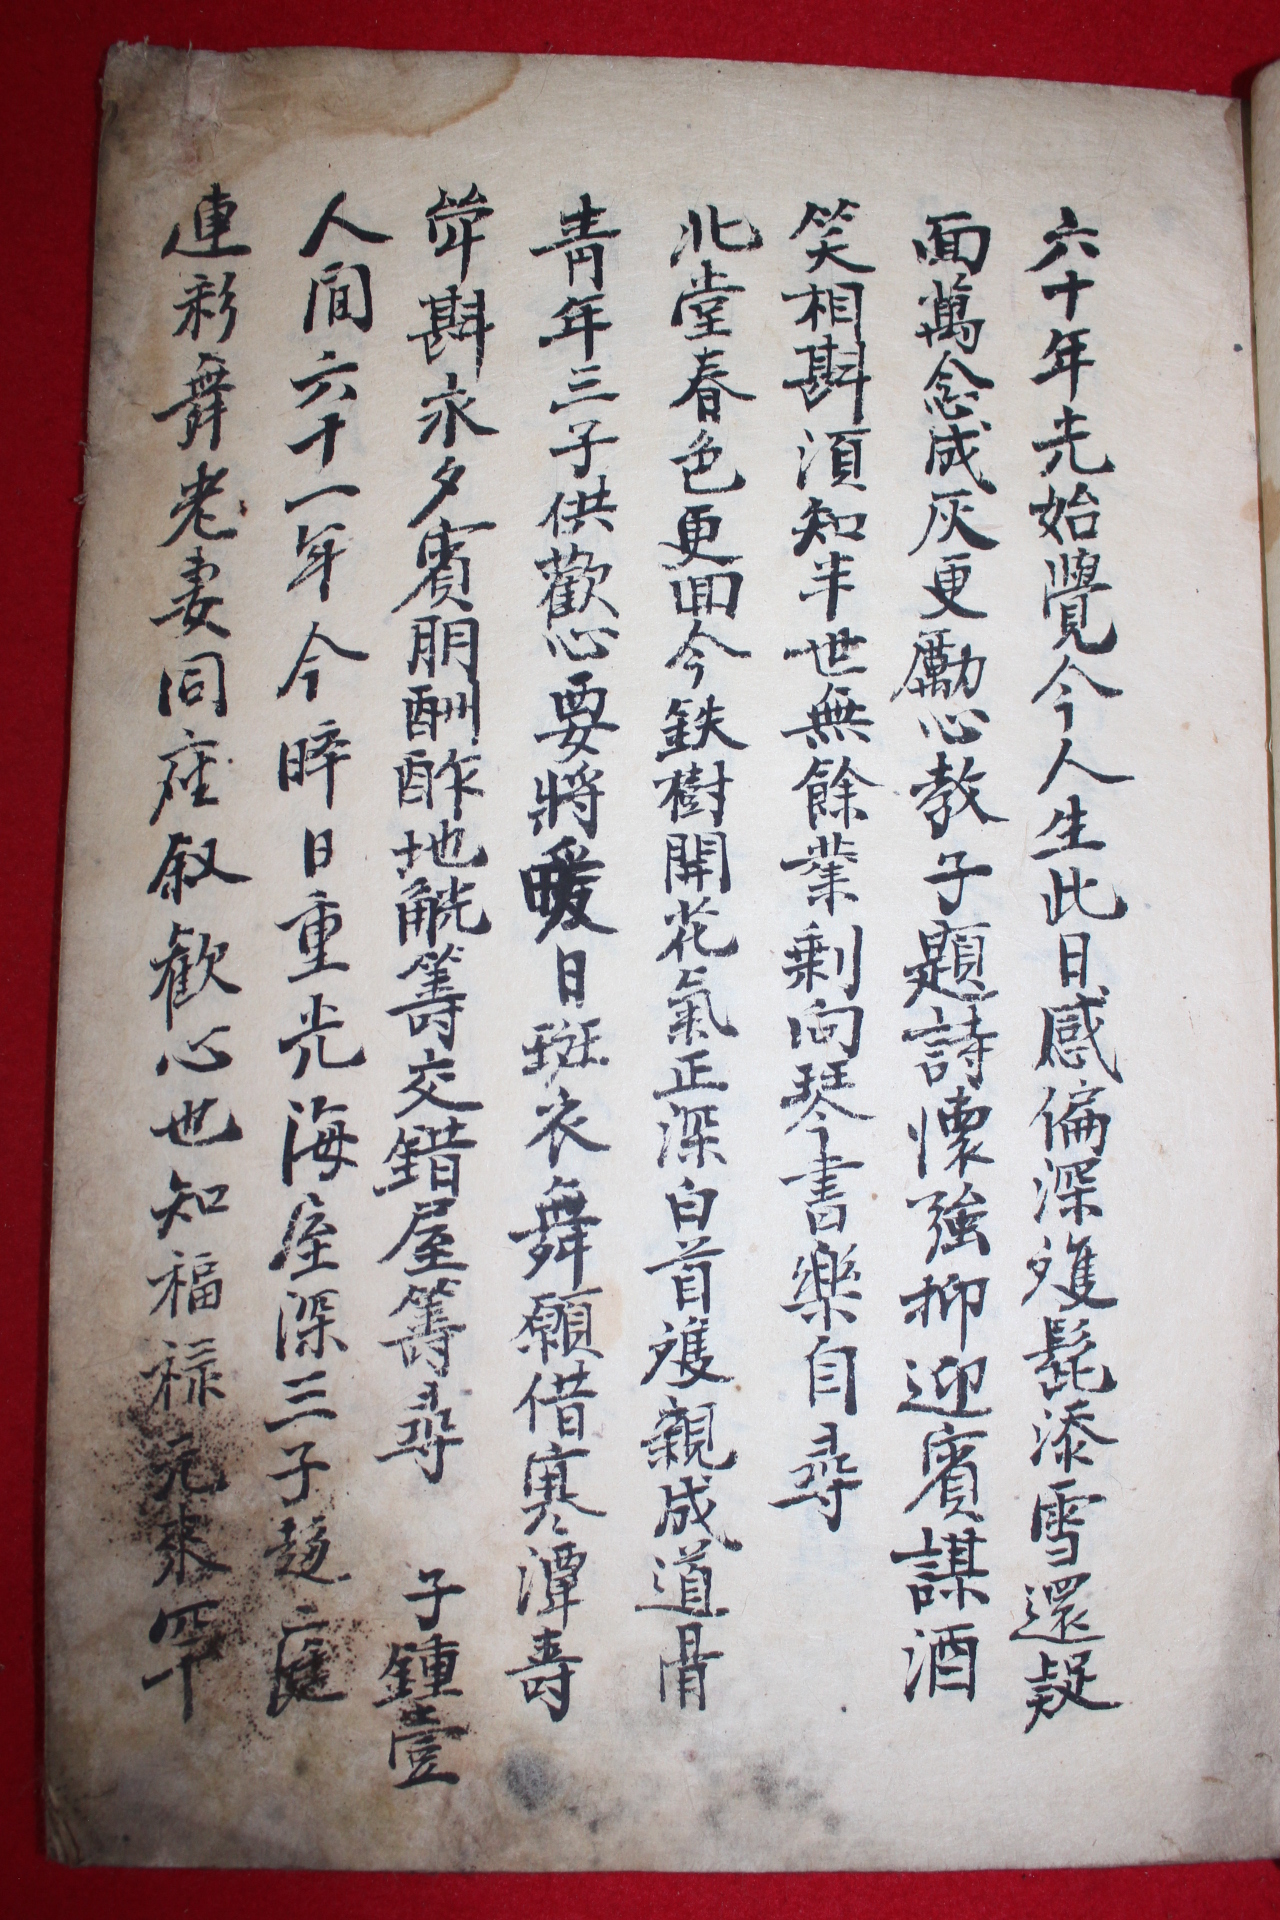 六十年光始覺今人生此日感偏深雙髭添雪還疑
面萬念成灰更勵心教子題詩懷強抑迎賓謀酒
笑相斟須知半世無餘業剩向琴書樂自尋
北堂春色更回今鉄樹開花氣正深白首雙親成道骨
青年三子供歡心要將暖日斑衣舞願借寒潭壽
斝斟永夕賓朋酬酢地觥籌交錯屋籌尋 子鍾壹
人間六十一年今晬日重光海屋深三子趍庭
連彩舞老妻同座叙歡心也知福祿完來罕